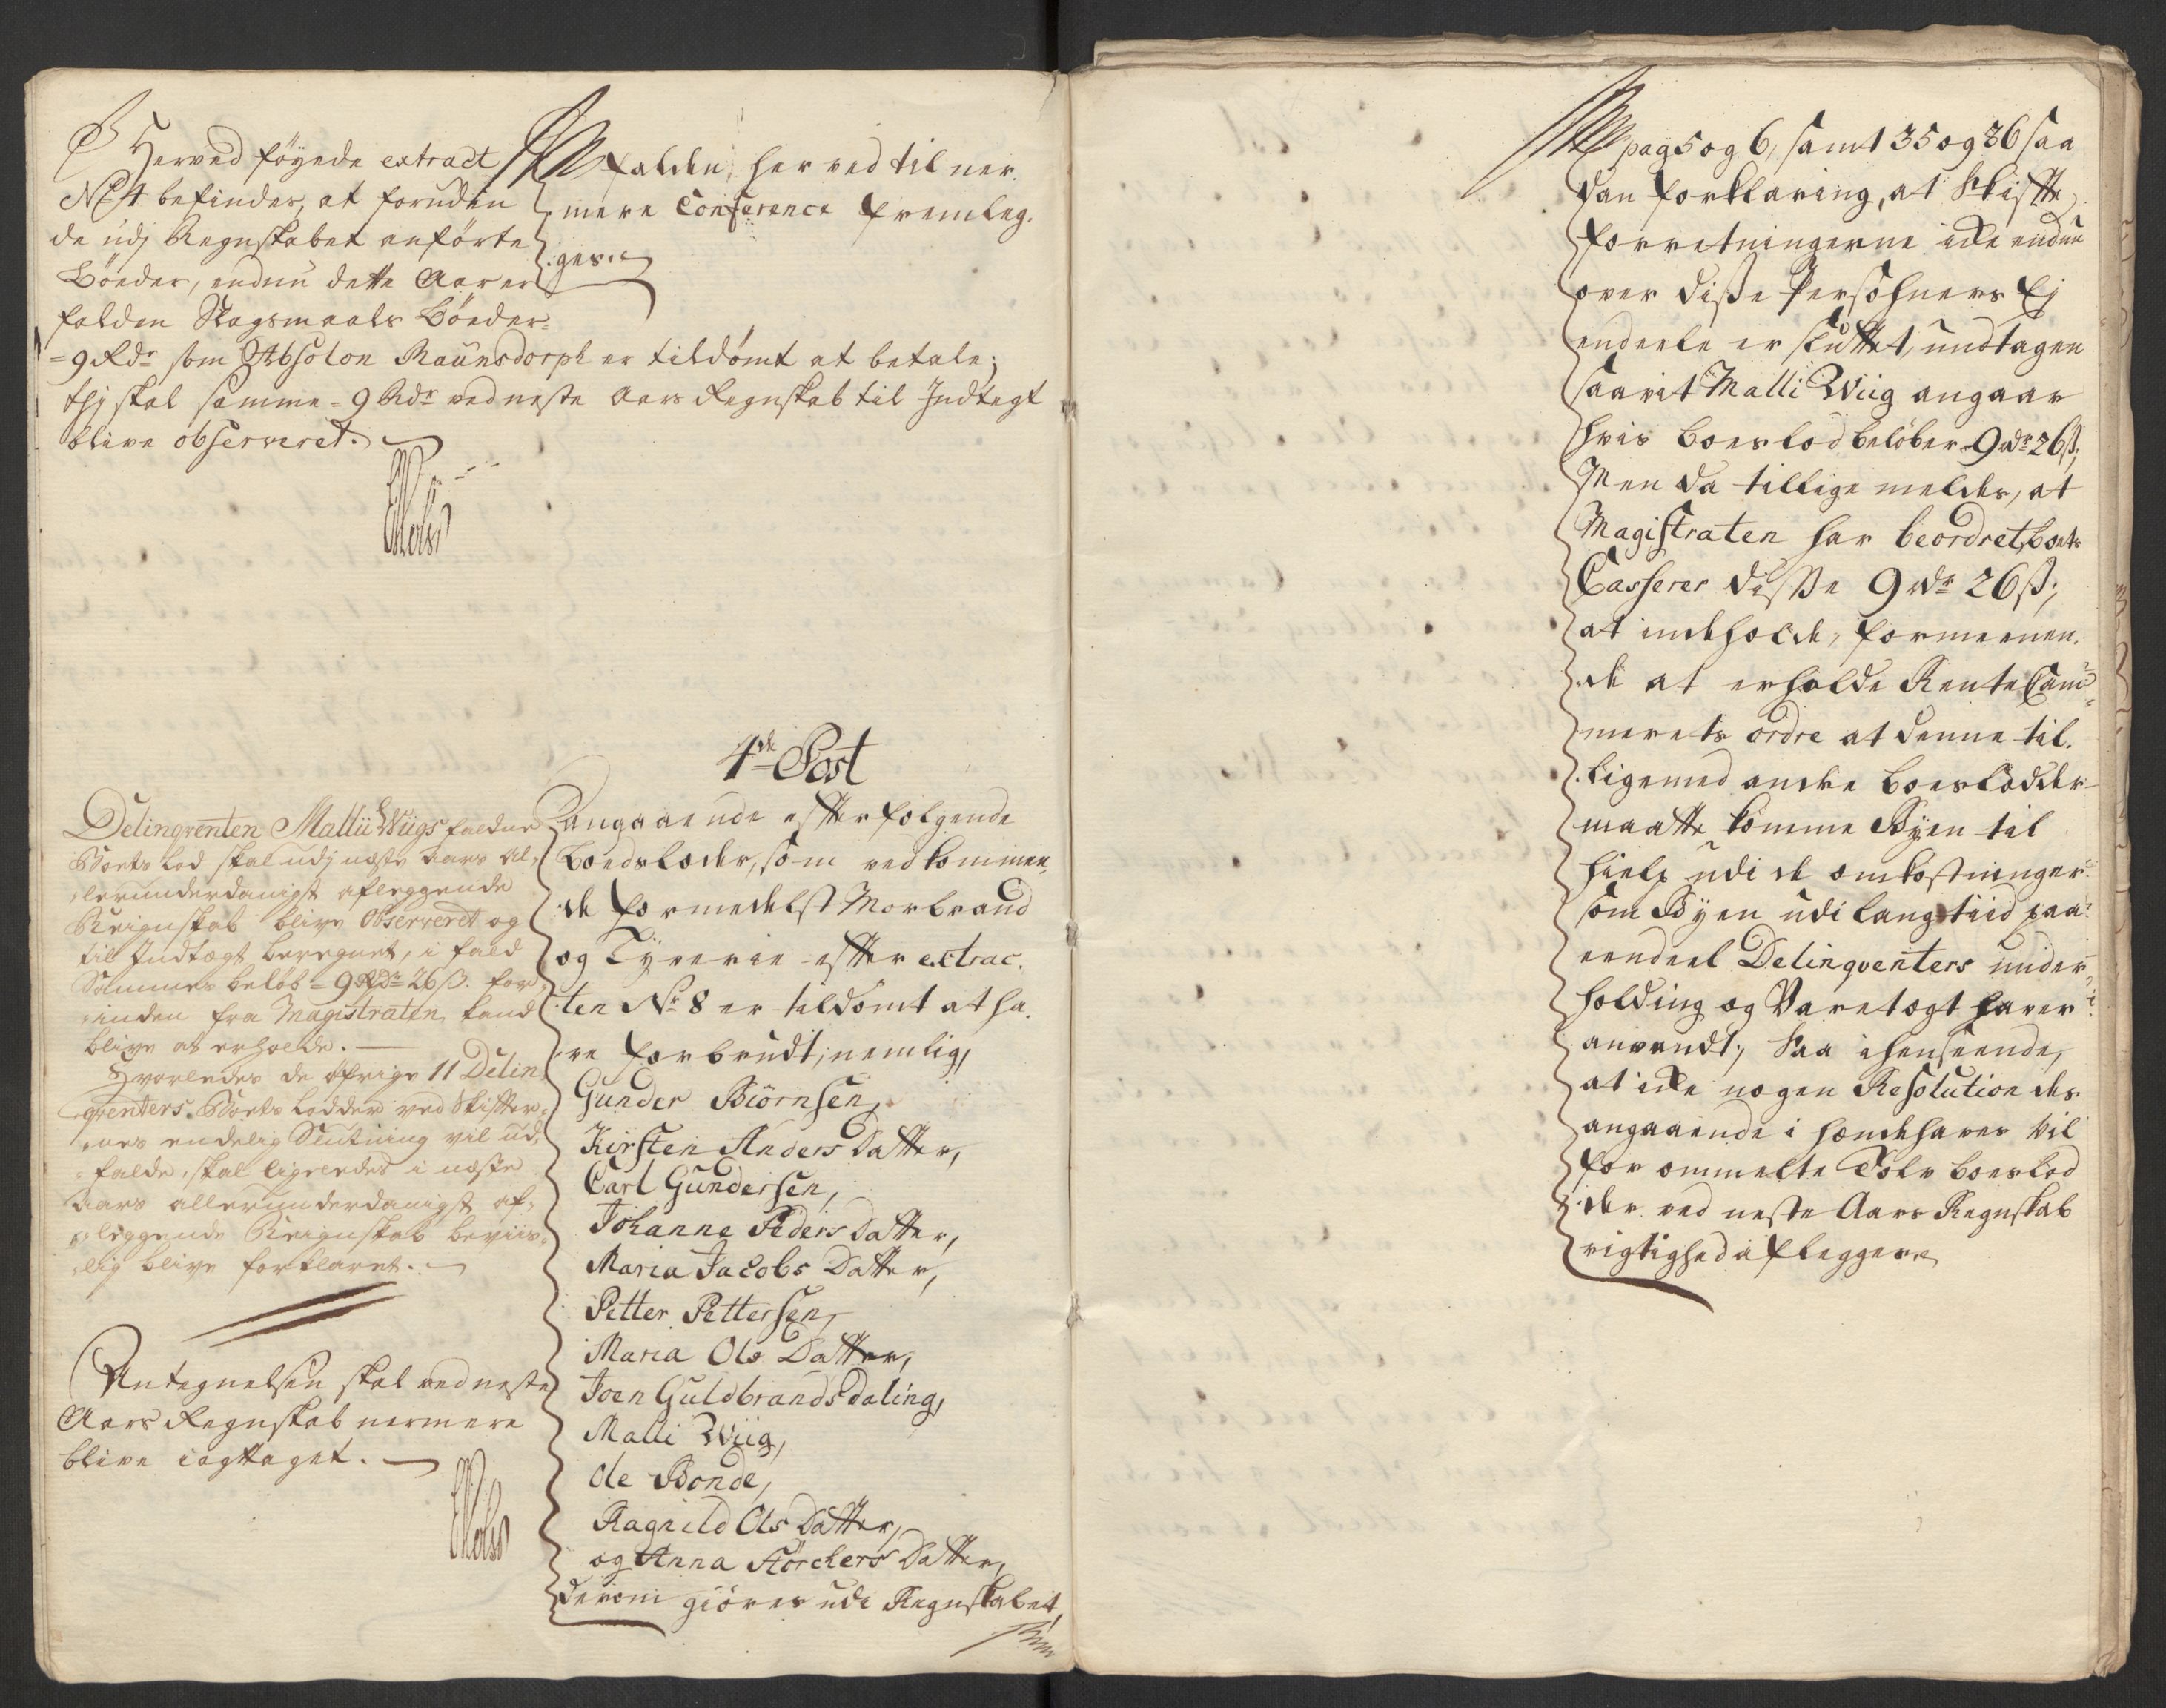 Herved föyede extract
No 4 befindes, at foruden
de udj Regnskabet anförte
Böeder, endnu dette Aar er
falden Slagsmaals Böeder
= 9 Rdr som Absolon Raunsdorph er tildömt at betale;
thj skal samme = 9 Rdr ved neste Aars Regnskab til Indtegt
blive observeret.
falden, her ved til ner-
mere Conference fremleg-
ges.
4de Post
Delinqventen Mallii Wiigs faldne
Boets Lod skal udj næste Aars al-
lerunderdanigst aflæggende
Reignskab blive Observeret og
til Indtægt beregnet, i fald
Sammes beløb = 9 Rdr 26 ß. for-
inden fra Magistraten kand
blive at erholde.
Hvorledes de øfrige 11 Delin
qventers Boets Lodder ved Skifter-
nes endelig Slutning vil ud-
falde, skal ligeledes i næste
Aars allerunderdanigst af-
læggende Reignskab beviis-
lig blive forklaret.
Antegnelsen skal ved neste
Aars Regnskab nermere
blive iagttaget.
angaaende efterfølgende
Boedsloder, som vedkommen-
de formedelst Morbrand
og Tyverie efter extrac-
ten No 8 er tildømt at ha-
ve forbrudt, nemlig,
Gunder Biörnsen,
Kirsten Anders Datter,
Carl Gundersen,
Johanne Peders Datter,
Maria Jacobs Datter,
Petter Pettersen,
Maria Ols Datter,
Joen Guldbrandsdaling,
Malli Wiig,
Ole Bonde,
Ragnild Ols Datter,
og Anna Störchers Datter,
derom giöres udi Regnskabet,
pag 5 og 6, samt 35 og 36 saa
dan forklaring, at Skifte
forretningerne icke endnu
over disse Persohners Ej
endeele er sluttet, undtagen
saavit Malli Wiig angaar
hvis boeslod belöber 9 rdr 26 ß;
Men da tillige meldes, at
Magistraten har beordret boets
Casserer disse 9 rdr 26 ß;
at indeholde, formeenen-
de at erholde Rente Cam-
merets ordre at denne til-
ligemed andre boeslodder
maatte komme Byen til
hielp udi de omkostninger
som Byen udi lang tiid paa
eendeel Delinqventers under-
holding og Varetægt haver
anvendt; Saa i henseende,
at icke nogen Resolution des
angaaende i hændehaves vil
for ommelte Tolv boeslod
der ved neste Aars Regnskab
rigtighed aflegges.